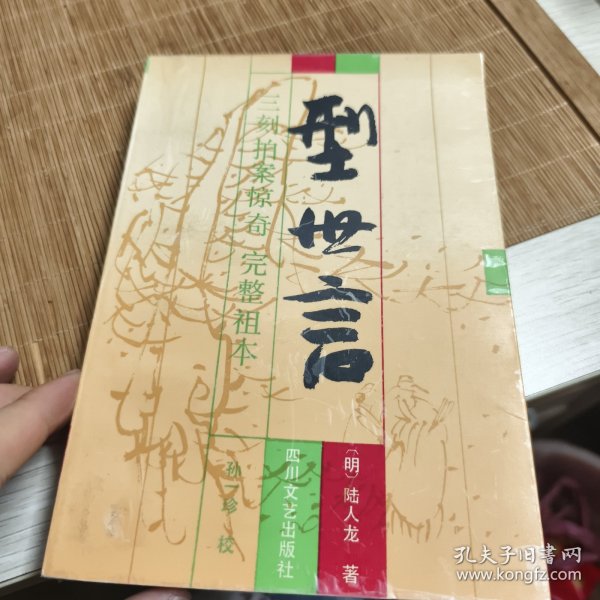 型世言
三刻拍案惊奇 完整祖本
〔明〕陆人龙 著
四川文艺出版社
孙一珍 校
孔夫子旧书网
www.kongfz.com